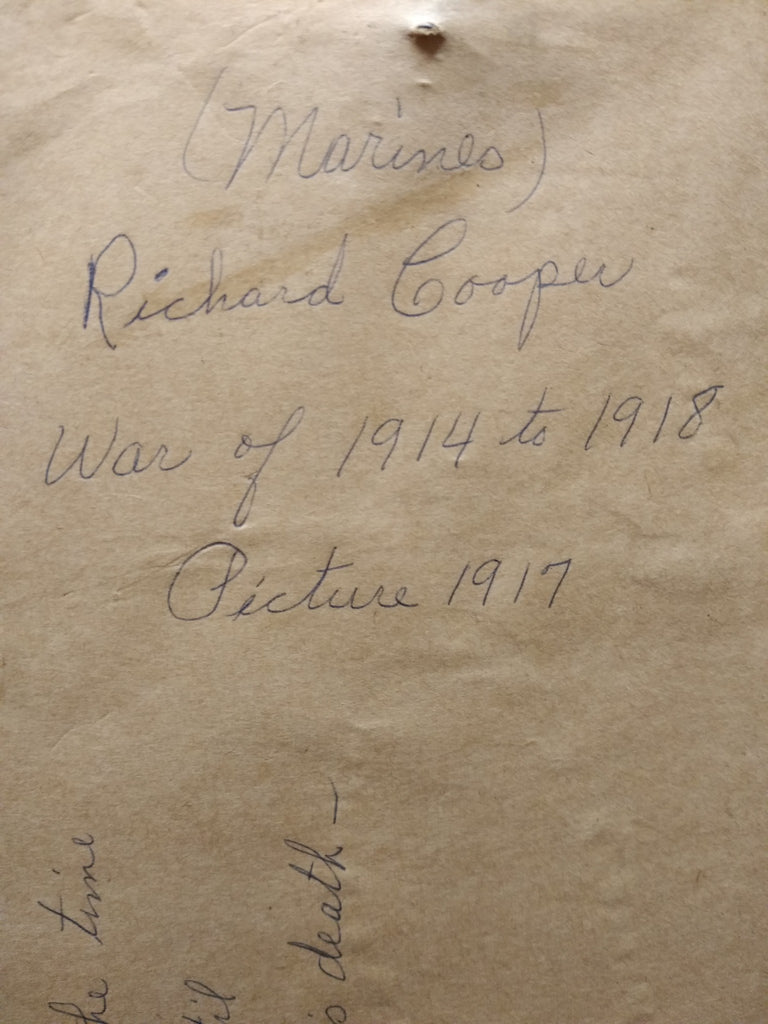 (Marines)
Richard Cooper
War of 1914 to 1918
Picture 1917
time
death —